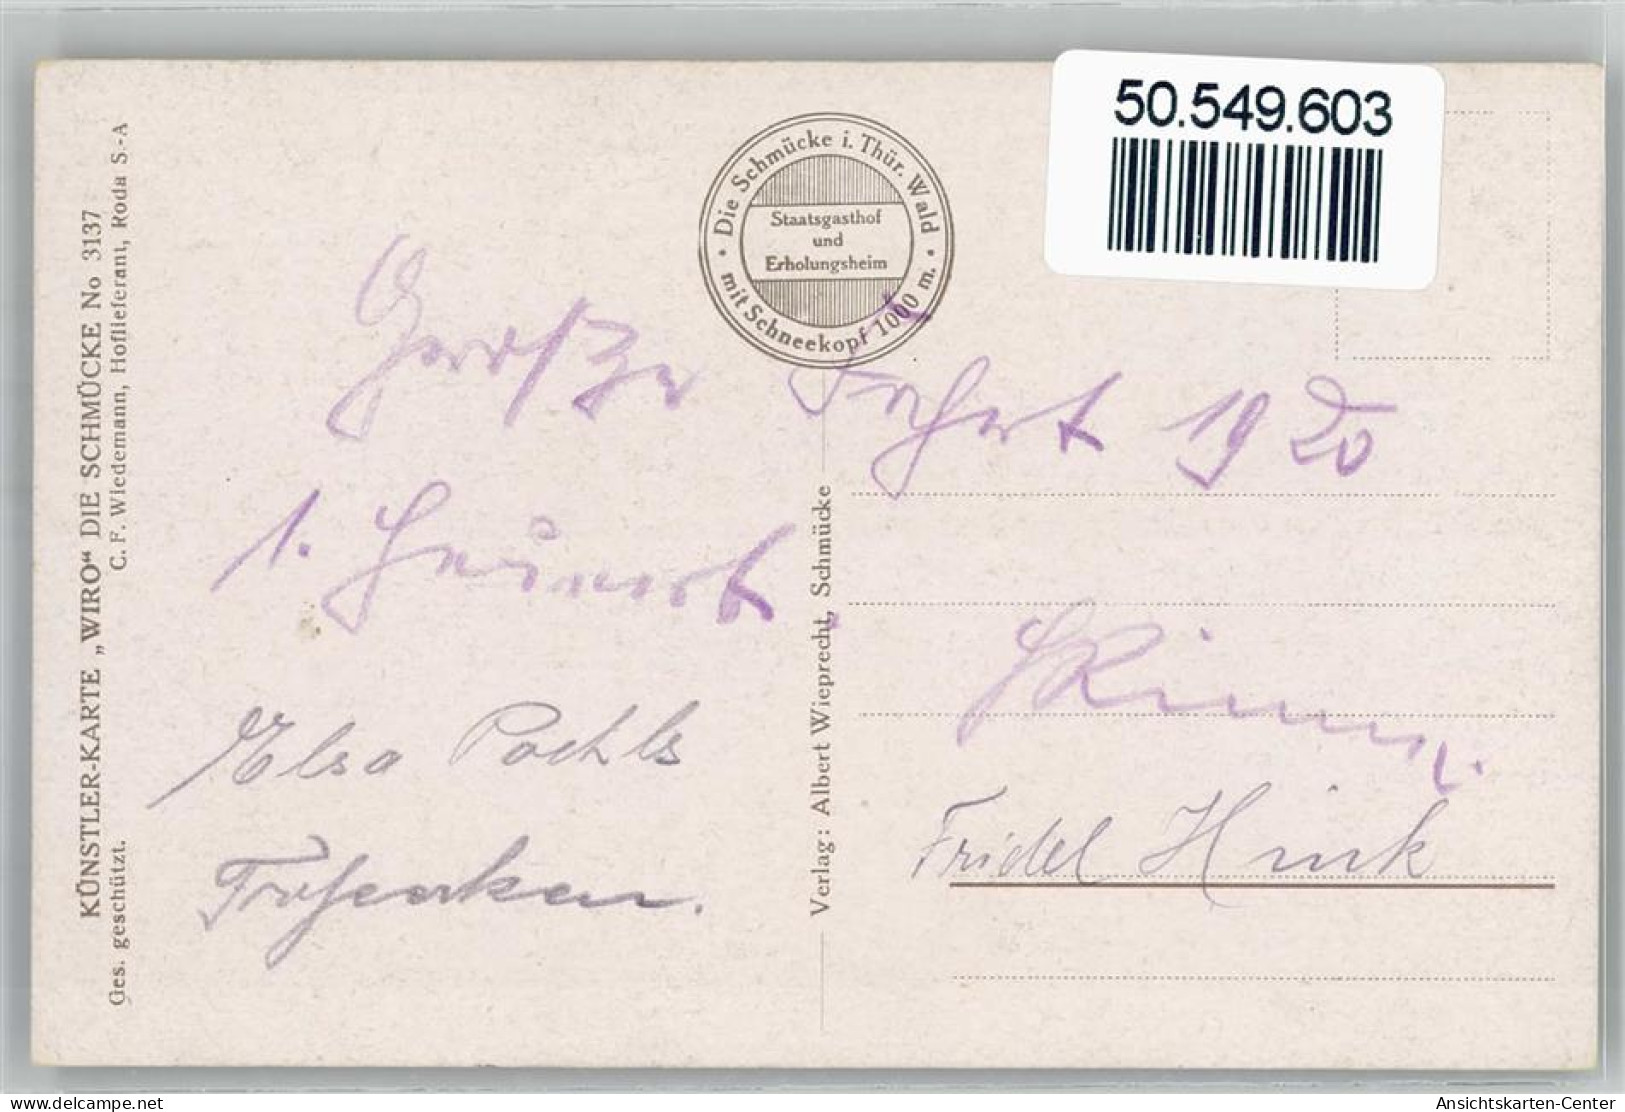 50.549.603
Die Schmücke i. Thür. Wald
Staatsgasthof
und
Erholungsheim
mit Schneekopf 1000 m.
KÜNSTLER-KARTE „WIRO“ DIE SCHMÜCKE No 3137
C. F. Wiedemann, Hoflieferant, Roda S.-A
Ges. geschützt.
Große Fahrt 1920
1.
Elsa Poehls
Verlag: Albert Wieprecht, Schmücke
Fridel Hink
www.delcampe.net
Ansichtskarten-Center